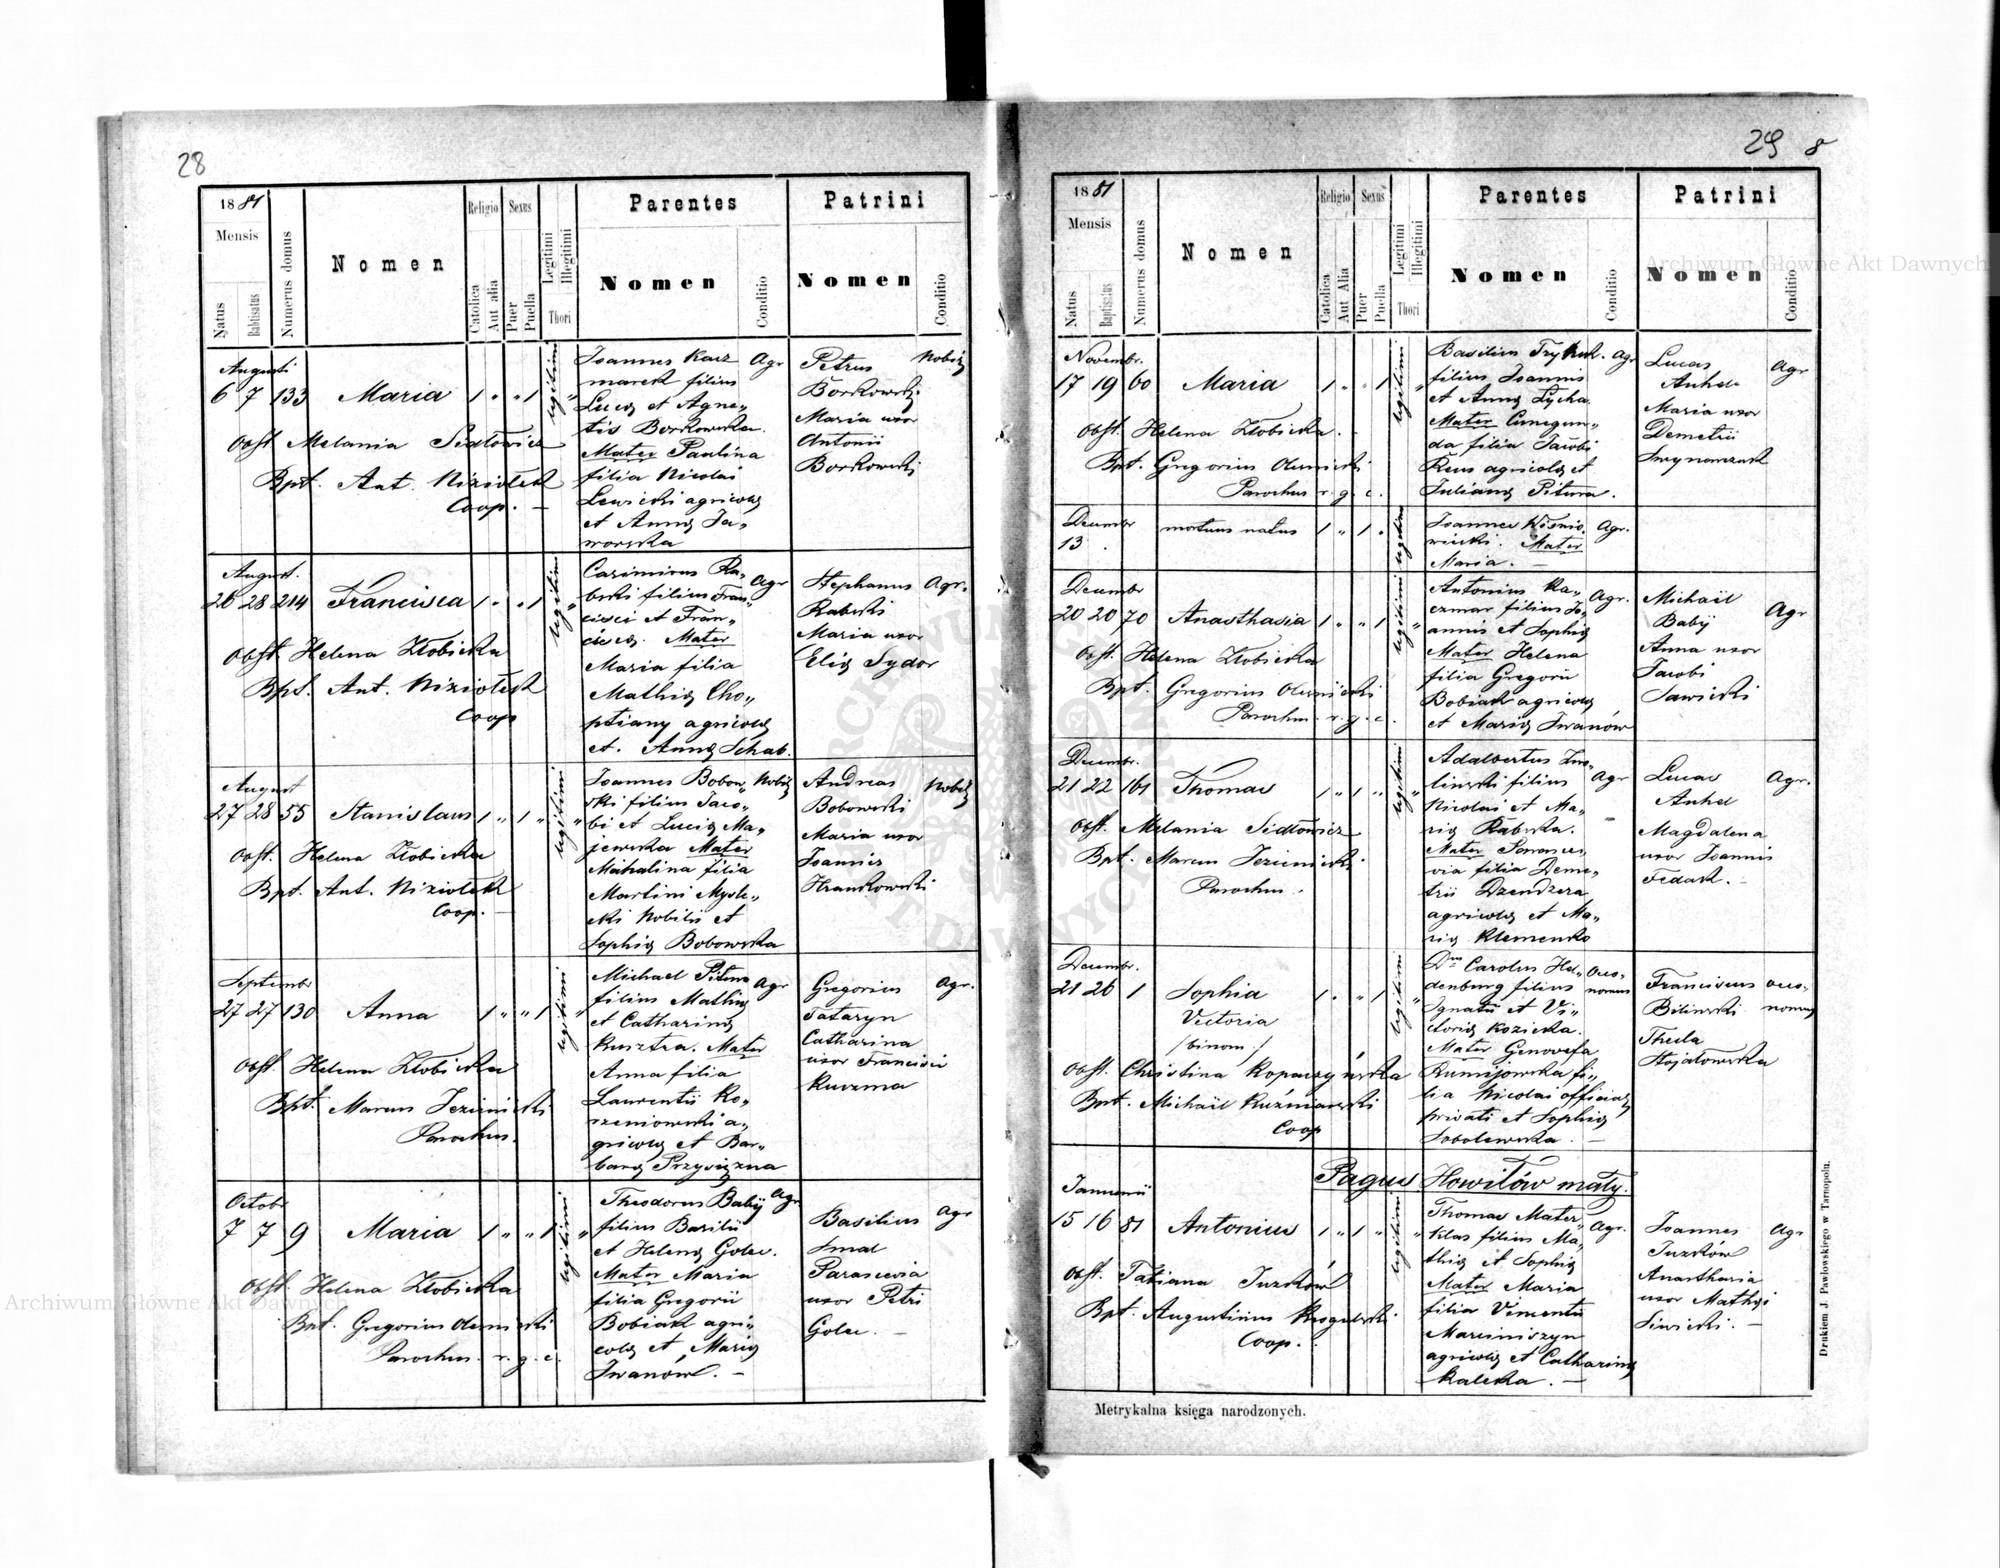 28
1881
Mensis
Natus
Babtisatus
Numerus domus
Nomen
Religio
Catolica
Aut alia
Sexus
Puer
Puella
Legitimi
Illegitimi
Thori
Parentes
Nomen
Conditio
Patrini
Nomen
Conditio
Augusti
6 7 133 Maria 1 " " 1 legitimi "
Obst. Melania Sidłowicz
Bpt. Ant. Niziołek
Coop. —
Joannes Karz Agr
marek filius
Lucæ et Agne„
tis Borkowska.
Mater Paulina
filia Nicolai
Lewicki agricolæ
et Annæ Ja„
worska
Petrus Nobilis
Borkowski
Maria uxor
Antonii
Borkowski
August.
26 28 214 Francisca 1 " " 1 legitimi "
Obst. Helena Złobicka
Bpt. Ant. Niziołek
Coop
Casimirus Ra„ Agr
bski filius Fran„
cisci et Fran„
ciscæ. Mater
Maria filia
Mathiæ Cho„
ptiany agricolæ
et. Annæ Schab.
Stephanus Agr.
Rabski
Maria uxor
Eliæ Sydor
August
27 28 55 Stanislaus 1 " 1 " legitimi "
Obst. Helena Złobicka
Bpt. Ant. Niziołek
Coop. —
Joannes Bobow„ Nobilis
ski filius Jaco„
bi et Luciæ Ma„
jewska Mater
Michalina filia
Martini Mysle„
cki Nobilis et
Sophiæ Bobowska
Andreas Nobilis
Bobowski
Maria uxor
Joannis
Hrankowski
Septembr
27 27 130 Anna 1 " " 1 legitimi "
Obst. Helena Złobicka
Bpt. Marcus Jezienicki
Parochus.
Michael Pitura Agr
filius Mathiæ
et Catharinæ
Kusztra. Mater
Anna filia
Laurentii Ko„
rzeniowski a„
gricolæ et Bar„
baræ Przywizna
Gregorius Agr.
Tataryn
Catharina
uxor Francisci
Kuzma
Octobr
7 7 9 Maria 1 " " 1 legitimi "
Obst. Helena Złobicka
Bpt. Gregorius Olesnicki
Parochus. r. g. c.
Theodorus Babij Agr
filius Basilii
et Helenæ Golec.
Mater Maria
filia Gregorii
Bobiak agri„
colæ et Mariæ
Iwanów. —
Basilius Agr
Smal
Parascevia
uxor Petri
Golec. —
29 8
1881
Mensis
Natus
Baptisatus
Numerus domus
Nomen
Religio
Catolica
Aut Alia
Sexus
Puer
Puella
Legitimi
Illegitimi
Thori
Parentes
Nomen
Conditio
Patrini
Nomen
Conditio
Novembr.
17 19 60 Maria 1 " " 1 legitimi "
Obst. Helena Złobicka. —
Bpt. Gregorius Olesnicki
Parochus r. g. c.
Basilius Agr
filius Joannis
et Annæ Lycha.
Mater Cunegun„
da filia Jacobi
Kus agricolæ et
Julianæ Pitura.
Lucas Agr
Anhel
Maria uxor
Demetrii
Decembr
13 . mortuus natus 1 " 1 . legitimi
Joannes Wiśnio„ Agr.
wiecki. Mater
Maria. —
Decembr
20 20 70 Anasthasia 1 " " 1 legitimi "
Obst. Helena Złobicka
Bpt. Gregorius Olesnicki
Parochus. r. g. c.
Antonius Ka„ Agr.
czmar filius Jo„
annis et Sophiæ
Mater Helena
filia Gregorii
Bobiak agricolæ
et Mariæ Iwanów
Michail Agr
Babij
Anna uxor
Jacobi
Sawicki
Decembr.
21 22 161 Thomas 1 " 1 " legitimi "
Obst. Melania Sidłowicz
Bpt. Marcus Jezienicki
Parochus.
Adalbertus Zmo„ Agr
linski filius
Nicolai et Ma„
riæ Rabska.
Mater Parasce„
via filia Deme„
trii Dzendzera
agricolæ et Ma„
riæ Klemenko
Lucas Agr.
Anhel
Magdalena
uxor Joannis
Fedak. —
Decembr.
21 26 1 Sophia 1 . " 1 legitimi "
Victoria
/binom./
Obst. Christina Kopaczyńska
Bpt. Michaïl Kuźniarski
Coop
Dnus Carolus Hel„ oeco„
denburg filius nomus
Ignatii et Vi„
ctoriæ Kozicka.
Mater Genovefa
Rumijowska fi„
lia Nicolai officialis
privati et Sophiæ
Sobolewska. —
Franciscus oeco„
Bilinski nomus
Thecla
Stojałowska
Pagus Howiłów mały.
Januarii
15 16 81 Antonius 1 " 1 " legitimi "
Obst. Tatiana Juzków
Bpt. Augustinus Rogulski
Coop.
Thomas Mater„ Agr.
klas filius Ma„
thiæ et Sophiæ
Mater Maria
filia Vincentii
Marciniszyn
agricolæ et Catharinæ
Kaleka. —
Joannes Agr
Juzków
Anasthasia
uxor Mathiæ
Siwicki. —
Metrykalna księga narodzonych.
Drukiem J. Pawłowskiego w Tarnopolu.
Archiwum Główne Akt Dawnych
Archiwum Główne Akt Dawnych
ARCHIWUM GŁÓWNE AKT DAWNYCH